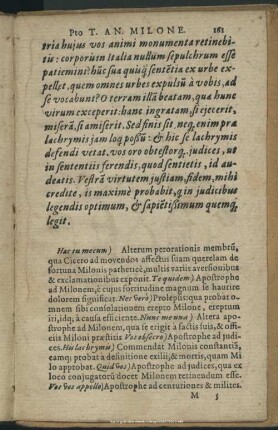 Pro T. AN. MILONE. 181
tria hujus vos animi monumenta retinebi-
tis: corporis in Italia nullum sepulchrum esse
patiemini? hũc sua quisq̃ sentẽtia ex urbe ex-
pellet, quem omnes urbes expulsũ à vobis, ad
se vocabunt? O terram illã beatam, qua hunc
virum exceperit: hanc ingratam, si ejecerit,
miserã, si amiserit. Sed finis sit. neq; enim præ
lachrymis jam loq̃ possũ: & hic se lachrymis
defendi vetat. vos oro obtestorq;, judices, ut
in sententiis ferendis, quod sentietis, id au-
deatis. Vestrã virtutem justitiam, fidem, mihi
credite, is maximè probabit, q̃ in judicibus
legendis optimum, & sapiẽtißimum quemq;
legit.
Hæc tu mecum) Alterum perorationis membrũ,
qua Cicero ad movendos affectus suam querelam de
fortuna Milonis patheticè, multis variis aversionibus
& exclamationibus exponit. Te quidem) Apostrophe
ad Milonem, è cujus fortitudine magnum se haurire
dolorem significat. Nec verò) Prolepsis: qua probat o-
mnem sibi consolationem erepto Milone, ereptum
iri, idq; à causa efficiente. Nunc me una) Altera apo-
strophe ad Milonem, qua se erigit à factis suis, & offi-
ciis Milonis præstitis. Vos obsecro) Apostrophe ad judi-
ces. His lachrymis) Commendat Milonis constantiã,
eamq; probat à definitione exilii, & mortis, quam Mi
lo approbat. Quid vos) Apostrophe ad judices, qua ex
loco conjugatorũ docet Milonem retinendum esse.
Vos vos appello) Apostrophe ad centuriones & milites.
M 5